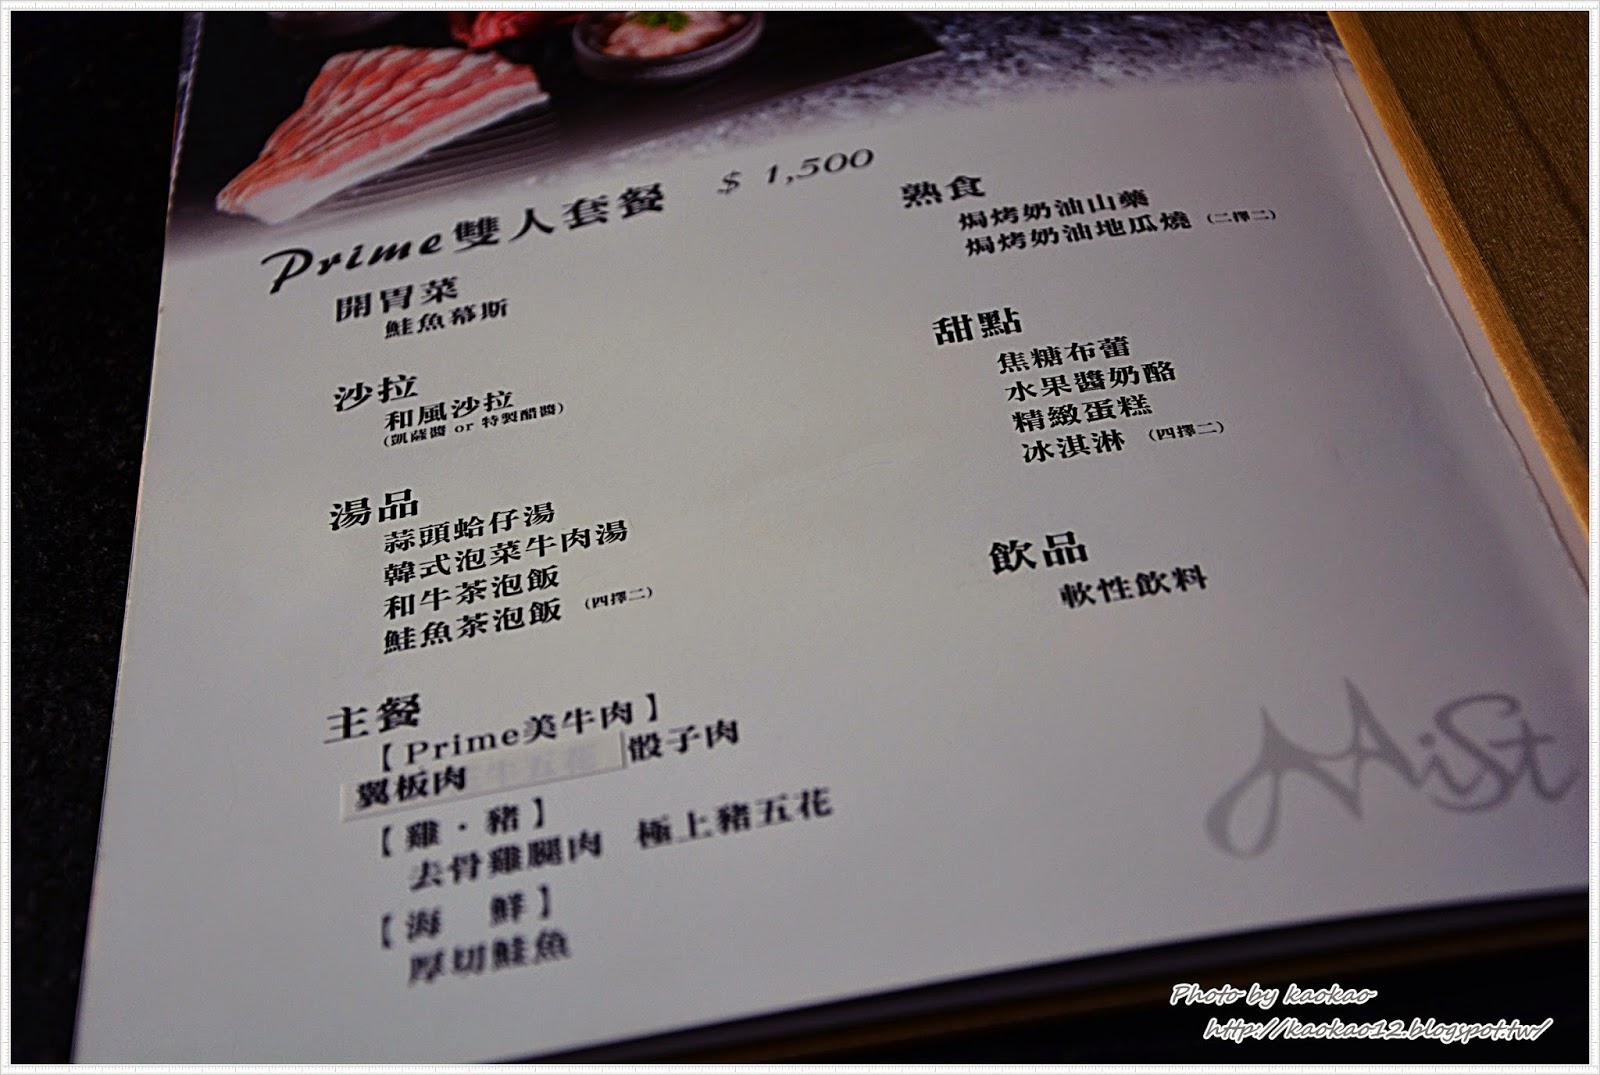 Prime雙人套餐 $ 1,500
開胃菜
鮭魚幕斯
沙拉
和風沙拉
(凱薩醬 or 特製醋醬)
湯品
蒜頭蛤仔湯
韓式泡菜牛肉湯
和牛茶泡飯
鮭魚茶泡飯 (四擇二)
主餐
【Prime美牛肉】
翼板肉 骰子肉
【雞・豬】
去骨雞腿肉 極上豬五花
【海 鮮】
厚切鮭魚
熟食
焗烤奶油山藥
焗烤奶油地瓜燒 (二擇二)
甜點
焦糖布蕾
水果醬奶酪
精緻蛋糕
冰淇淋 (四擇二)
飲品
軟性飲料
MiSt
Photo by kaokao
http://kaokao12.blogspot.tw/